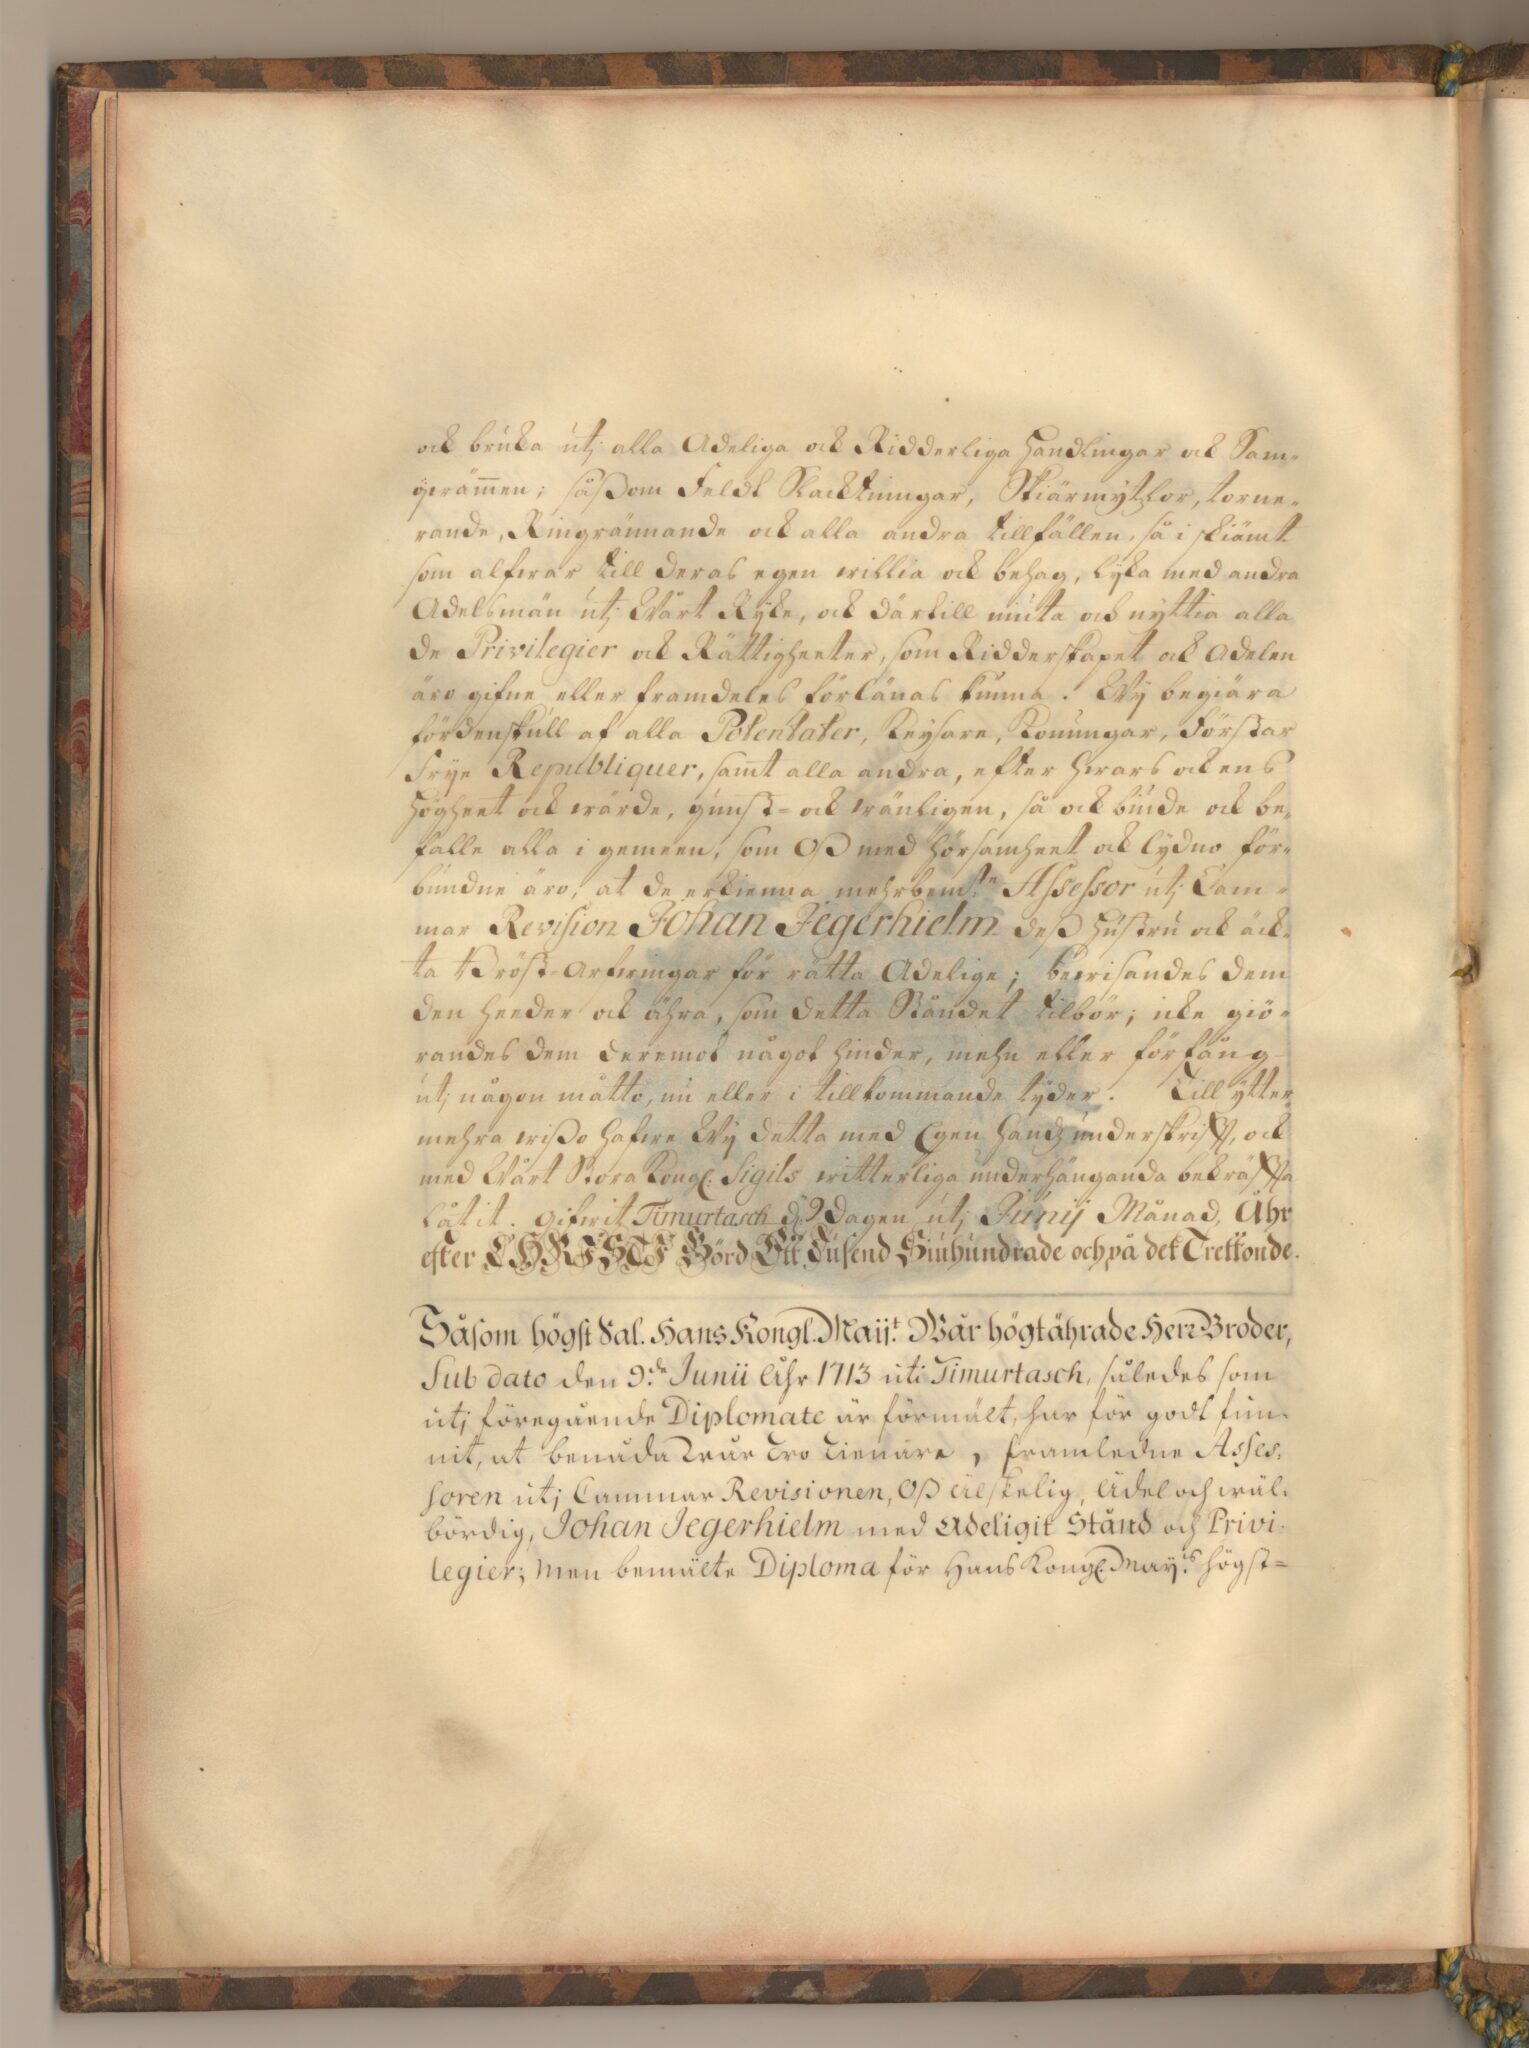 ock bruka utj alla Adeliga ock Ridderliga Handlingar ock Sam-
qwämmen; såssom Feldt Slacktningar, Skiärmytzlor, torne-
rande, Ringrännande ock alla andra tillfällen, så i skiämt
som alfwar till deras egen willia ock behag, lyka med andra
Adelsmän utj Wårt Ryke, ock därtill niuta och nyttia alla
de Privilegier ock Rättigheeter, som Ridderskapet ock Adelen
äro gifne eller framdeles förlänas kunna. Wy begiära
fördenskull af alla Potentater, Keysare, Konungar, Förstar
Frye Republiquer, samt alla andra, efter hwars ock ens
Högheet ock wärde, gunst= ock wänligen, så ock biude ock be-
falle alla i gemeen, som Oss med hörsamheet ock lydno för-
bundne äro, at de erkienna mehrbem.te Assessor utj Cam-
mar Revision Johan Jegerhielm dess Hustru ock äck-
ta Bröst-Arfwingar för rätta Adelige; bewisandes dem
den heeder ock ähra, som detta Ståndet tilbör; icke giö-
randes dem deremot något hinder, mehn eller förfång
utj någon måtto, nu eller i tillkommande tyder. Till ytter
mehra wisso hafwe Wy detta med Egen Handz underskrifft, ock
med Wårt Stora Kongl. Sigils witterliga underhängande bekräffta
låtit. Gifwit Timurtasch d. 9 dagen utj Junij Månad, Åhr
efter CHRISTI Börd Ett Tusend Siuhundrade och på det Trettonde.
Såsom högst Sal. Hans Kongl. Maij.t Wår högtährade Herr Broder,
Sub dato den 9.de Junii Åhr 1713 uti Timurtasch, således som
utj föregående Diplomate är förmält, har för godt fun-
nit, at benåda Wår Tro Tienare, framledne Asses-
soren utj Cammar Revisionen, Oss älskelig, Ädel och wäl-
bördig, Johan Jegerhielm med Adeligit Stånd och Privi-
legier; Men bemälte Diploma för Hans Kongl. May.ts högst=